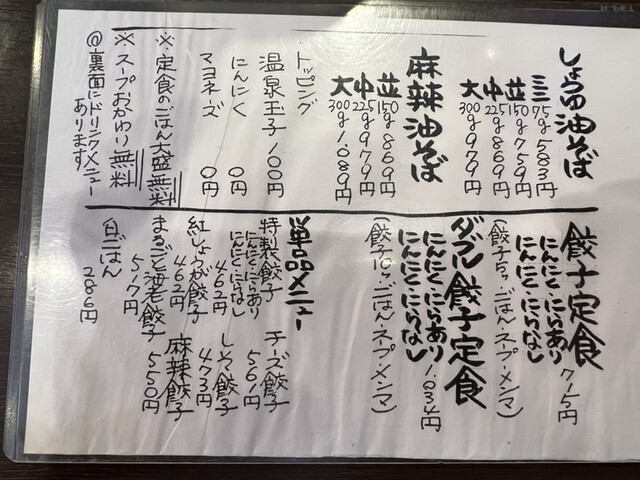 しょうゆ油そば
ミニ 75g 583円
並 150g 759円
中 225g 869円
大 300g 979円
麻辣油そば
並 150g 869円
中 225g 979円
大 300g 1.089円
トッピング
温泉玉子 100円
にんにく 0円
マヨネーズ 0円
※定食のごはん大盛無料
※スープおかわり無料
@裏面にドリンクメニュー
あります
餃子定食
にんにく・にらあり
にんにく・にらなし
715円
(餃子5ヶ・ごはん・スープ・メンマ)
ダブル餃子定食
にんにく・にらあり
にんにく・にらなし
1.034円
(餃子10ヶ・ごはん・スープ・メンマ)
単品メニュー
特製餃子
にんにく・にらあり
にんにく・にらなし
462円
チーズ餃子
561円
紅しょうが餃子
462円
しそ餃子
473円
まるごと海老餃子
517円
麻辣餃子
550円
白ごはん
286円